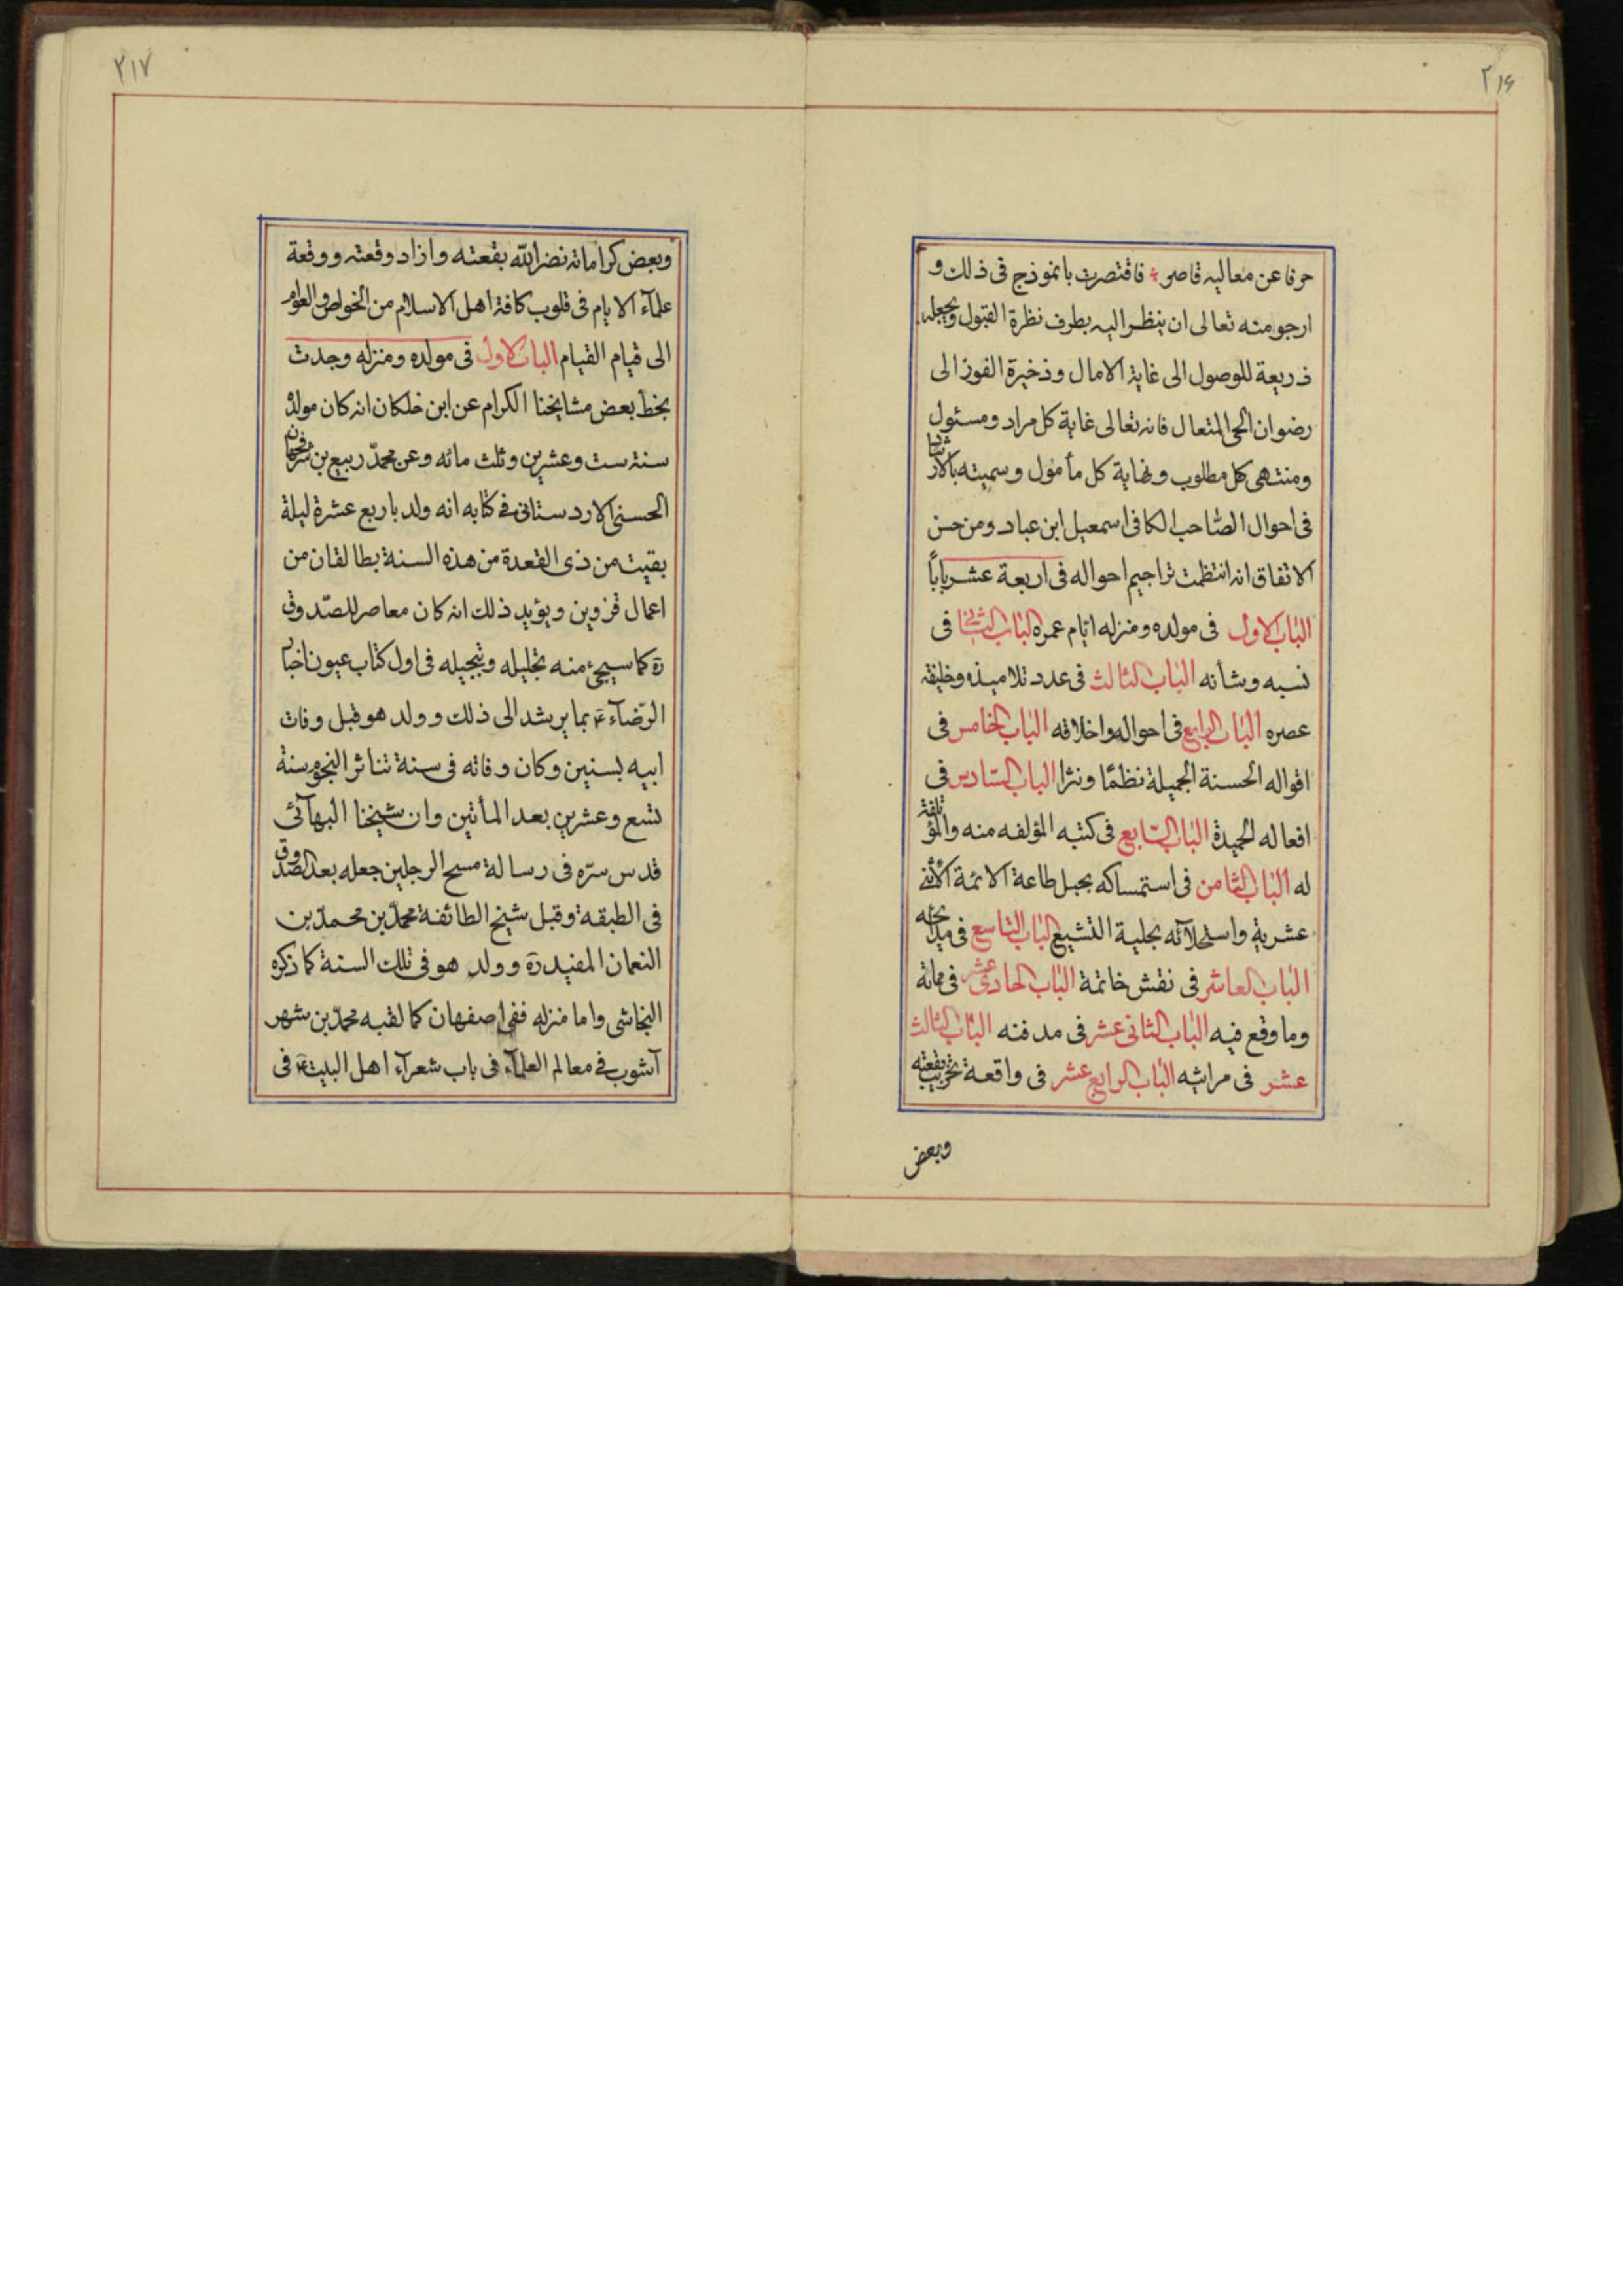 ٢١۶
حرفا عن معاليه قاصر فاقتصرت بانموذج فى ذلك و
ارجو منه تعالى ان ينظر اليه بطرف نظرة القبول ويجعله
ذريعة للوصول الى غاية الامال وذخيرة الفوز الى
رضوان الحى المتعال فانه تعالى غاية كل مراد ومسئول
ومنتهى كل مطلوب ونهاية كل مأمول وسميته بالارشاد
فى احوال الصّاحب الكافى اسمعيل ابن عباد ومن حسن
الاتفاق انه انتظمت تراجيم احواله فى اربعة عشر باباً
الباب الاول فى مولده ومنزله ايّام عمره الباب الثانى فى
نسبه وشأنه الباب الثالث فى عدد تلاميذه وخليفة
عصره الباب الرابع فى احواله واخلاقه الباب الخامس فى
اقواله الحسنة الجميلة نظمًا ونثرا الباب السّادس فى
افعاله الحميدة الباب السّابع فى كتبه المؤلفه منه والمؤلفة
له الباب الثامن فى استمساكه بحبل طاعة الائمة الاثنى
عشرية واستحلآئه بحلية التشيع الباب التاسع فى مدائحه
الباب العاشر فى نقش خاتمة الباب الحادى عشر فى مماته
وما وقع فيه الباب الثانى عشر فى مدفنه الباب الثالث
عشر فى مراثيه الباب الرابع عشر فى واقعة تخريب بقعته
وبعض
٢١٧
وبعض كراماته نضر اللّه بقعته وازاد وقعته ووقعة
علمآء الايام فى قلوب كافة اهل الاسلام من الخواص والعوام
الى قيام القيام الباب الاول فى مولده ومنزله وجدت
بخط بعض مشايخنا الكرام عن ابن خلكان انه كان مولده
سنة ست وعشرين وثلث مائه وعن محمّد ربيع بن شرفجهان
الحسنى الاردستانى فى كتابه انه ولد باربع عشرة ليلة
بقيت من ذى القعدة من هذه السنة بطالقان من
اعمال قزوين ويؤيد ذلك انه كان معاصر للصّدوق
ره كما سيجئ منه تجليله وتبجيله فى اول كتاب عيون اخبار
الرّضاء ع بما يرشد الى ذلك وولد هو قبل وفات
ابيه بسنين وكان وفاته فى سنة تناثر النجوم سنة
تسع وعشرين بعد المأتين وان شيخنا البهآئى
قدس سرّه فى رسالة مسح الرجلين جعله بعد الصّدوق
فى الطبقه وقبل شيخ الطائفة محمّد بن محمّد بن
النعمان المفيد ره وولد هو فى تلك السنة كما ذكره
النجاشى واما منزله ففى اصفهان كما لقبه محمّد بن شهر
آشوب فى معالم العلمآء فى باب شعرآء اهل البيت ع فى